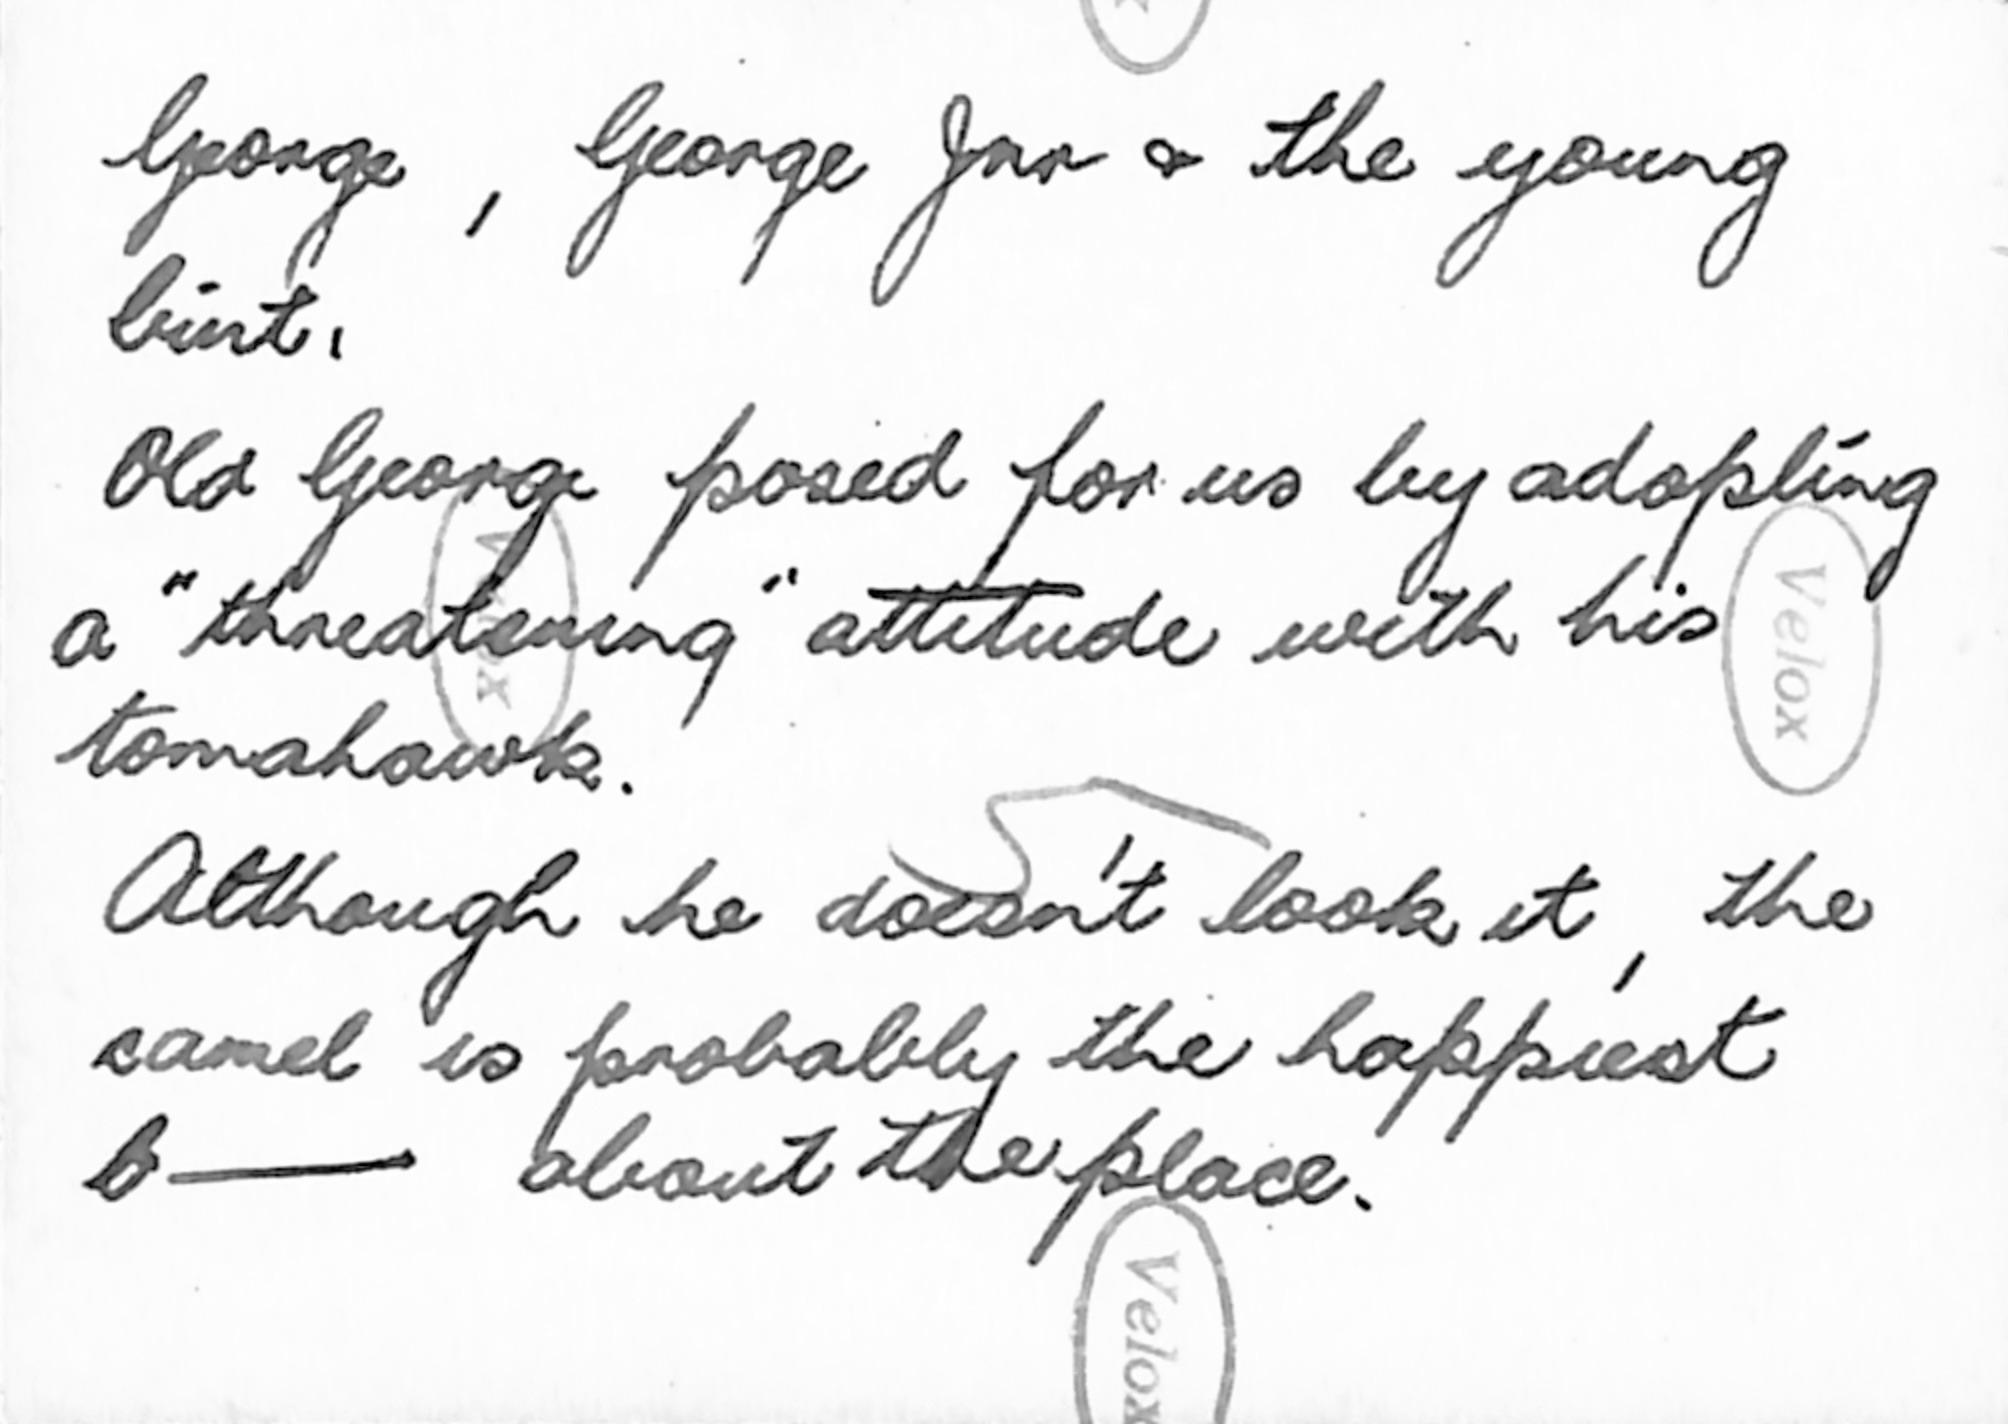 George, George Jnr & the young
bint.
Old George posed for us by adopting
a "threatening" attitude with his
tomahawk.
Although he doesn't look it, the
camel is probably the happiest
b—— about the place.
Velox
Velox
Velox